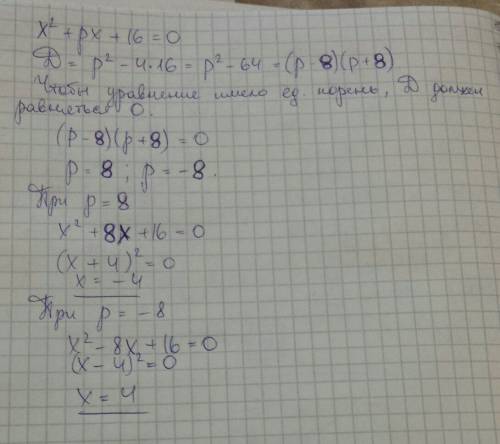 x² + px + 16 = 0
Д = p² - 4·16 = p² - 64 = (p - 8)(p + 8)
Чтобы уравнение имело ед. корень, Д должен
равняться 0.
(p - 8)(p + 8) = 0
p = 8 ; p = -8.
При p = 8
x² + 8x + 16 = 0
(x + 4)² = 0
x = -4
При p = -8
x² - 8x + 16 = 0
(x - 4)² = 0
x = 4